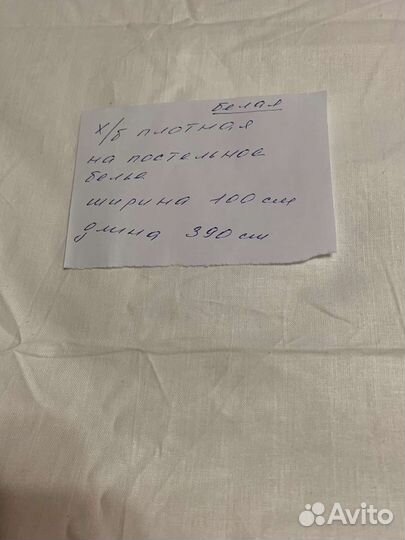 белая
х/б плотная
на постельное
белье
ширина 100 см
длина 390 см
Avito